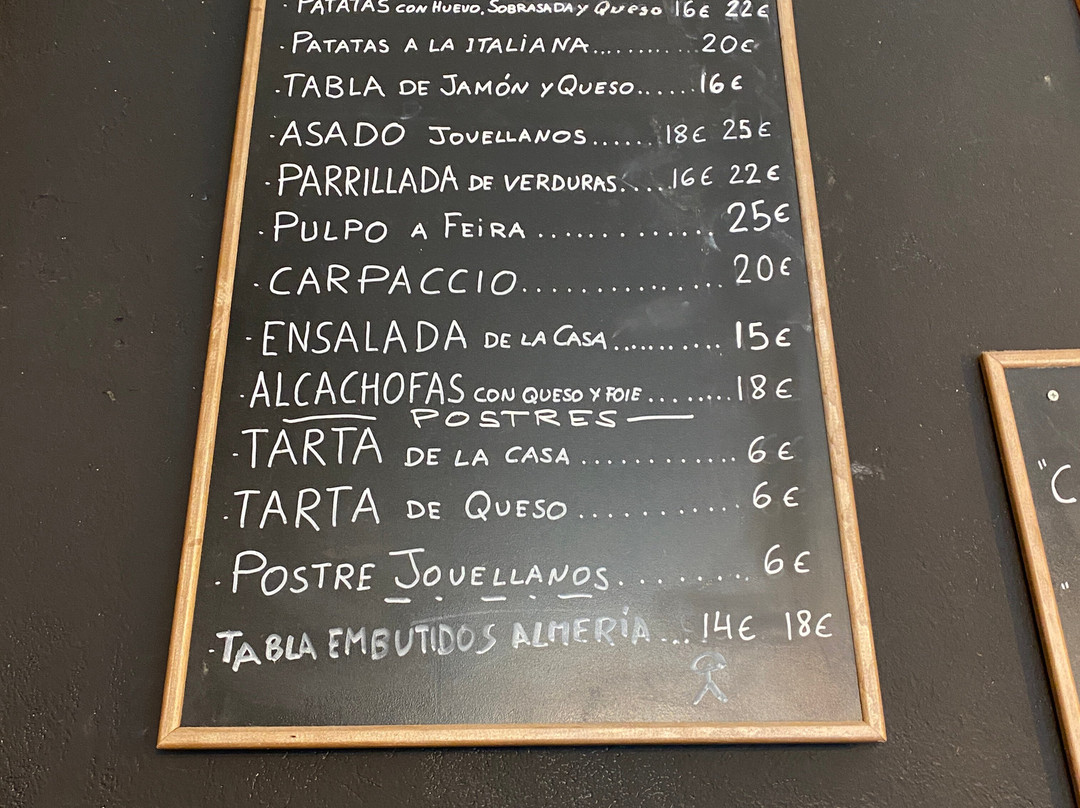 · PATATAS CON HUEVO, SOBRASADA Y QUESO 16€ 22€
· PATATAS A LA ITALIANA.......... 20€
· TABLA DE JAMÓN Y QUESO...... 16€
· ASADO JOVELLANOS...... 18€ 25€
· PARRILLADA DE VERDURAS..... 16€ 22€
· PULPO A FEIRA ............. 25€
· CARPACCIO............... 20€
· ENSALADA DE LA CASA.......... 15€
· ALCACHOFAS CON QUESO Y FOIE......... 18€
POSTRES
· TARTA DE LA CASA ............ 6€
· TARTA DE QUESO ............ 6€
· POSTRE JOVELLANOS......... 6€
· TABLA EMBUTIDOS ALMERÍA... 14€ 18€
"C
"